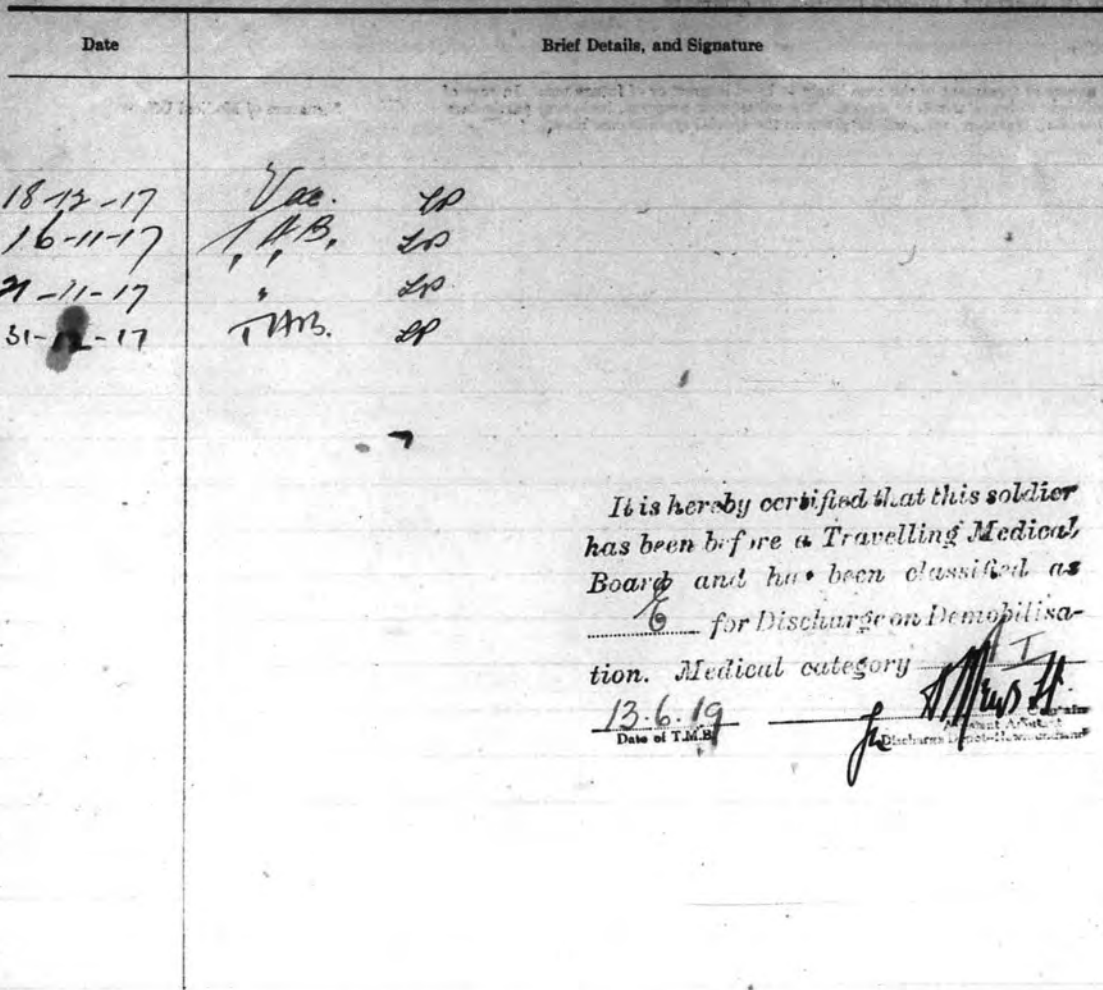 Date Brief Details, and Signature
18-12-17 Vac. LP
16-11-17 TAB. LP
21-11-17 " LP
31-12-17 TAB. LP
It is hereby certified that this soldier
has been before a Travelling Medical
Board and has been classified as
E for Discharge on Demobilisa-
tion. Medical category I
13.6.19
Date of T.M.B.
for Captain
Assistant Adjutant
Discharge Depot-Newfoundland